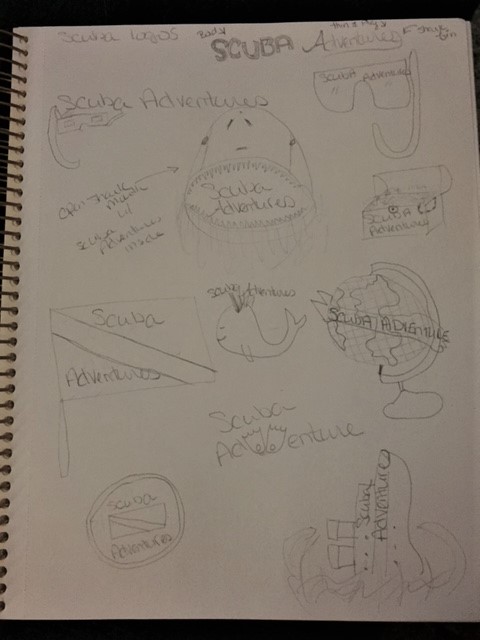 Scuba logos
Body
SCUBA Adventures
thin & wavy
Scuba Adventures
SCUBA Adventures
open shark
mouth
w/
Scuba
Adventures
inside
Scuba
Adventures
SCUBA
Adventures
Scuba
Adventures
Scuba Adventures
SCUBA ADVENTURE
Scuba
Adventure
Scuba
Adventures
Scuba
Adventures